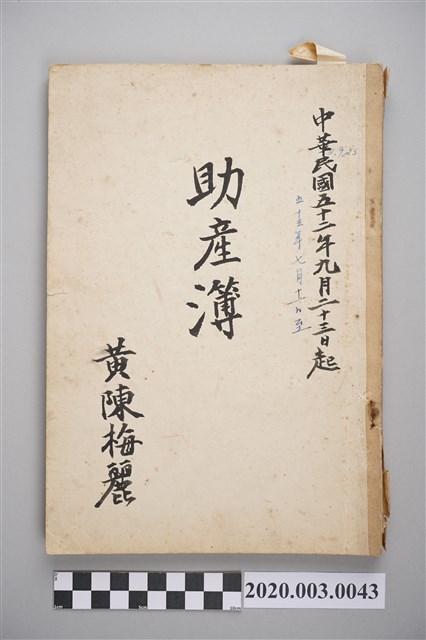 中華民國五十二年九月二十三日起
五十三年七月十一日至
助產簿
黃陳梅麗
2020.003.0043